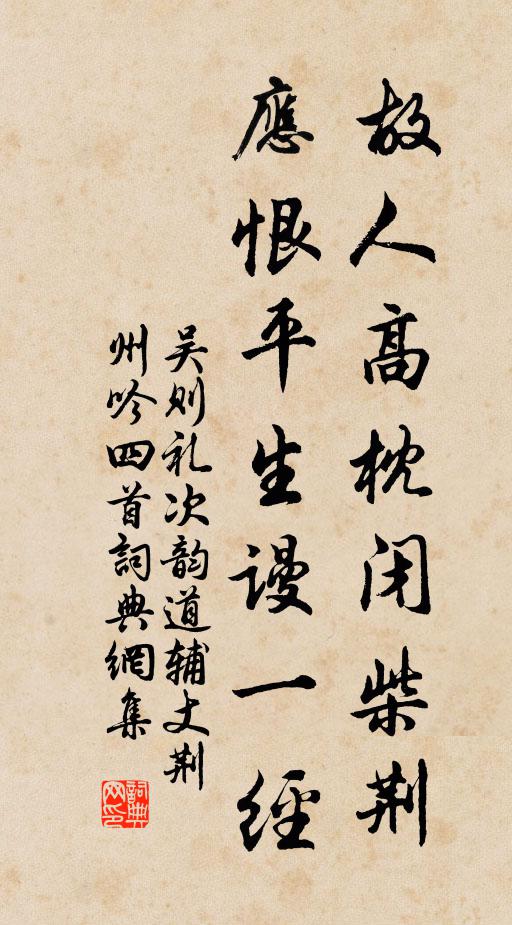 故人高枕闭柴荆
應恨平生謾一經
吴则礼次韵道辅丈荆
州吟四首詞典網集
詞典
网印